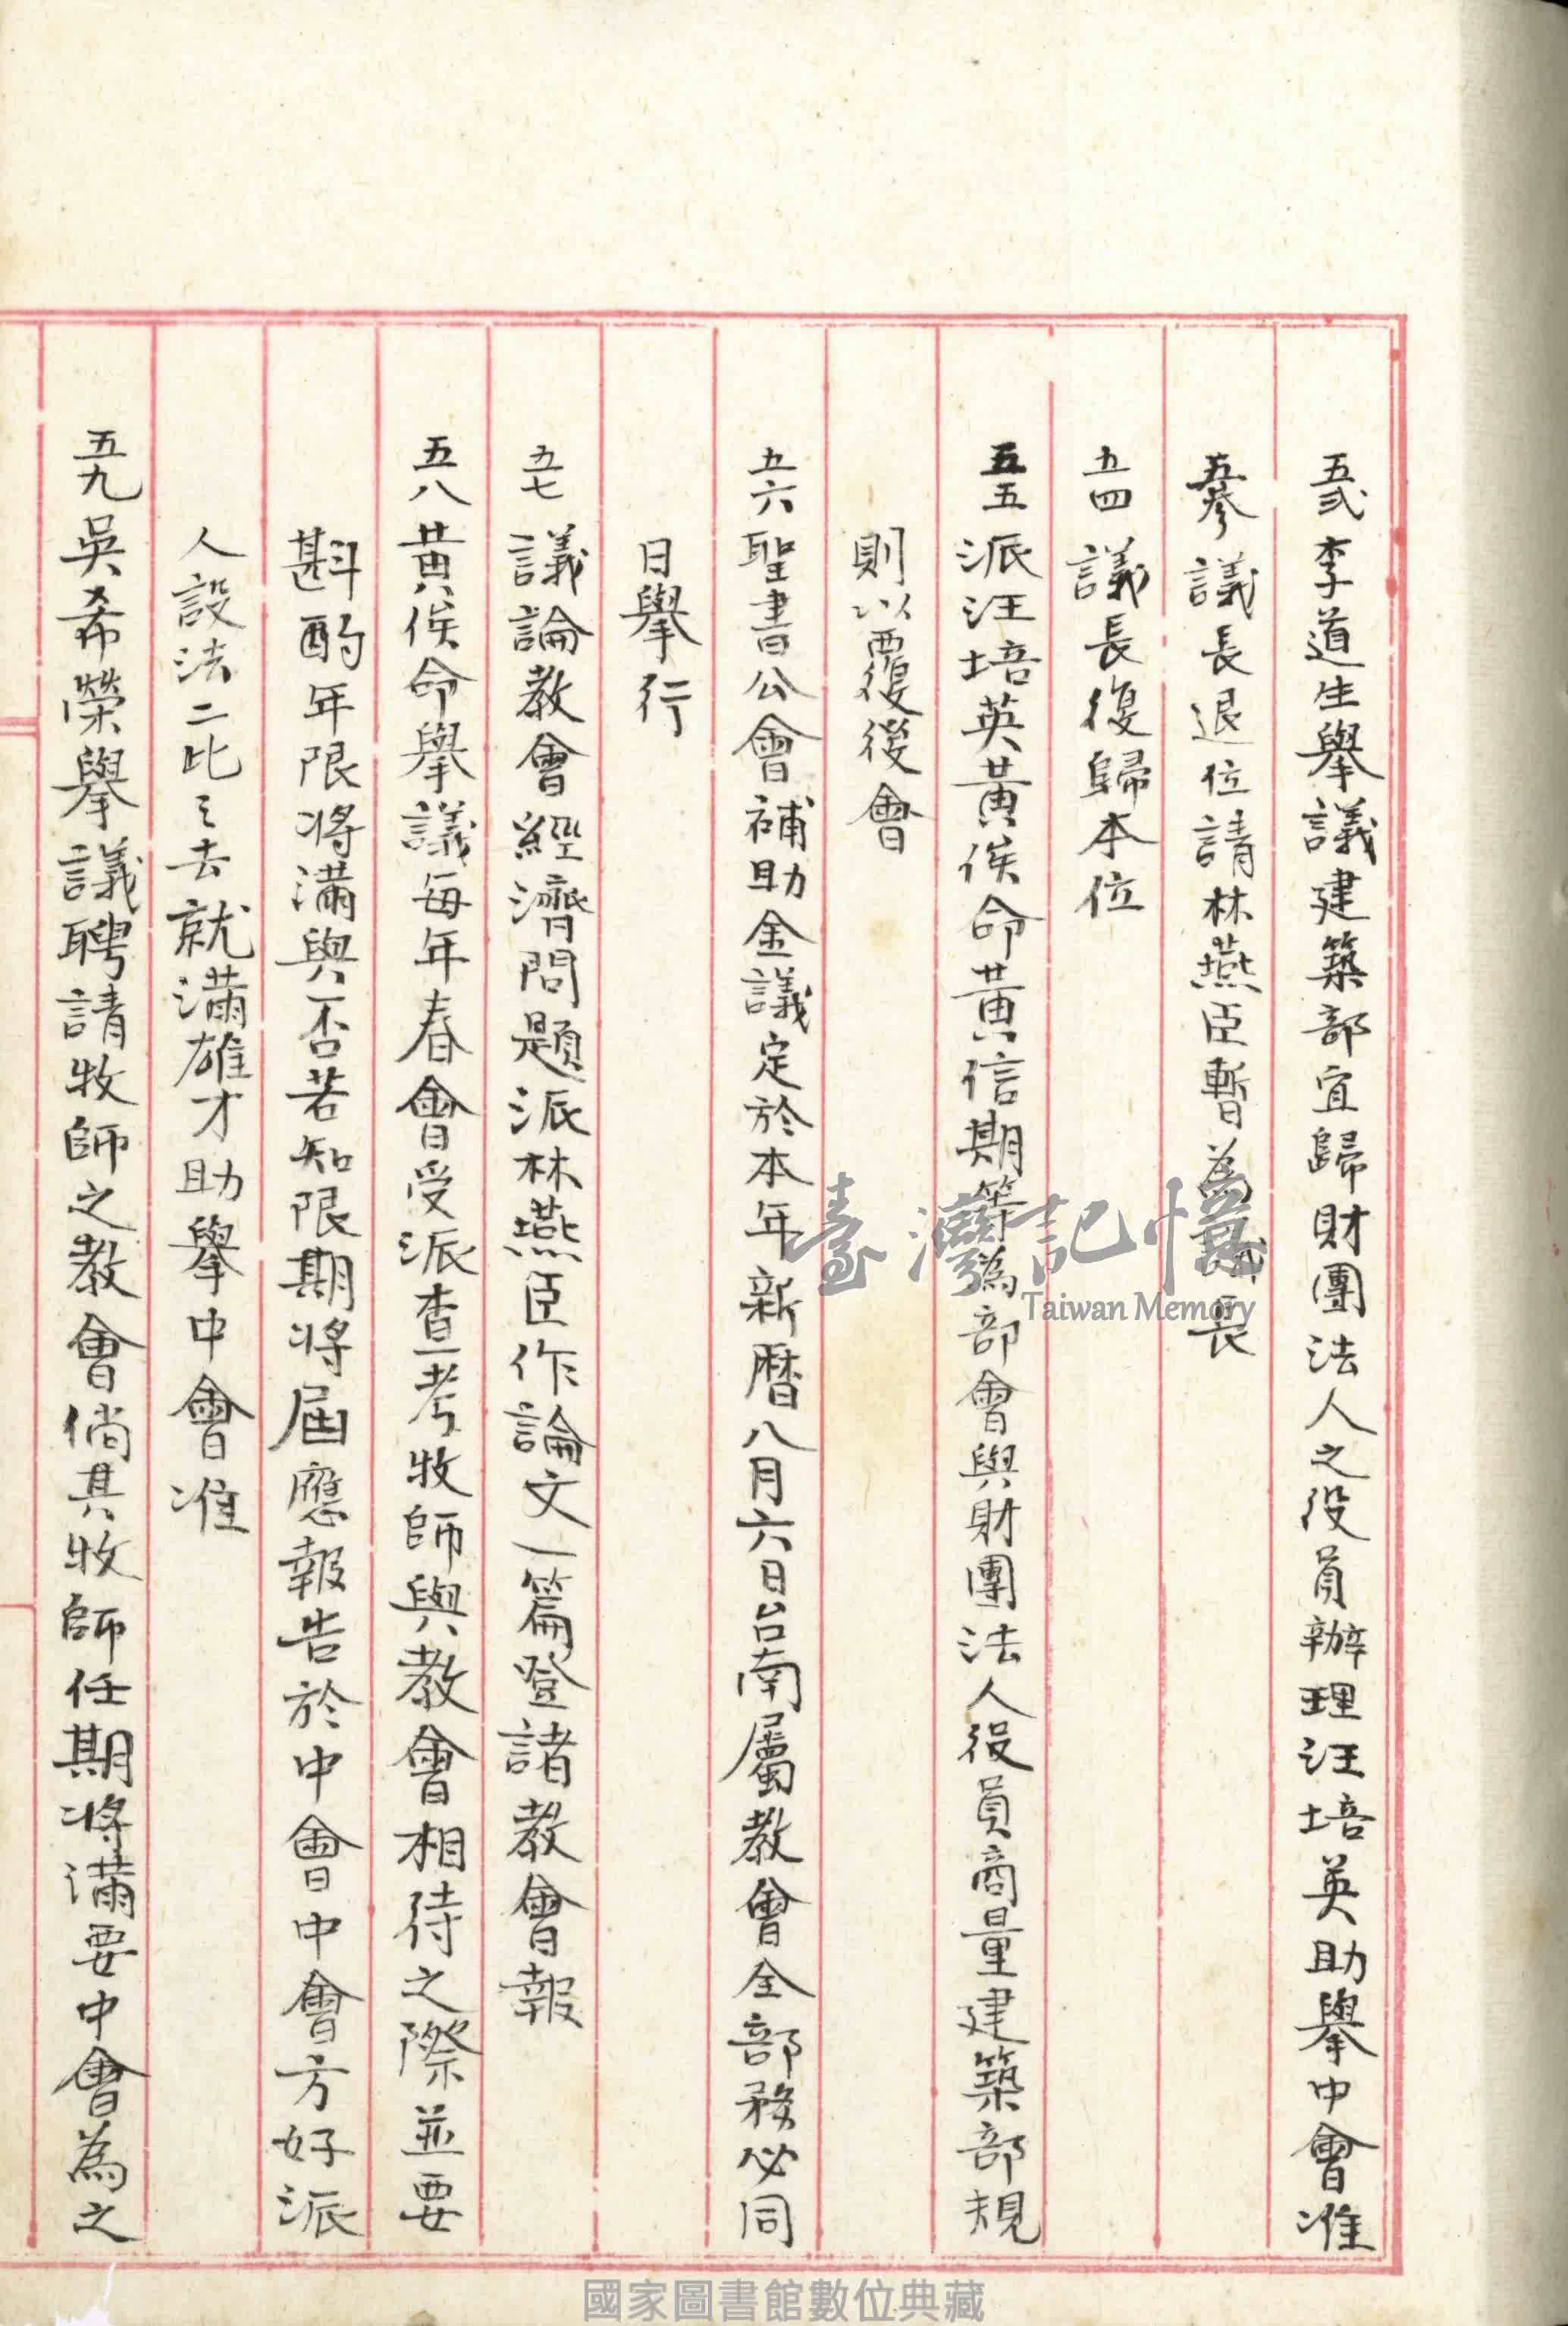 五弍 李道生舉議建築部宜歸財團法人之役員辦理汪培英助舉中會准
五參 議長退位請林燕臣暫為議長
五四 議長復歸本位
五五 派汪培英黃俟命黃信期等為部會與財團法人役員商量建築部規
則以覆後會
五六 聖書公會補助金議定於本年新曆八月六日台南屬教會全部務必同
日舉行
五七 議論教會經濟問題派林燕臣作論文一篇登諸教會報
五八 黃俟命舉議每年春會受派查考牧師與教會相待之際並要
斟酌年限將滿與否若知限期將屆應報告於中會中會方好派
人設法二比之去就滿雄才助舉中會准
五九 吳希榮舉議聘請牧師之教會倘其牧師任期將滿要中會為之
臺灣記憶
Taiwan Memory
國家圖書館數位典藏